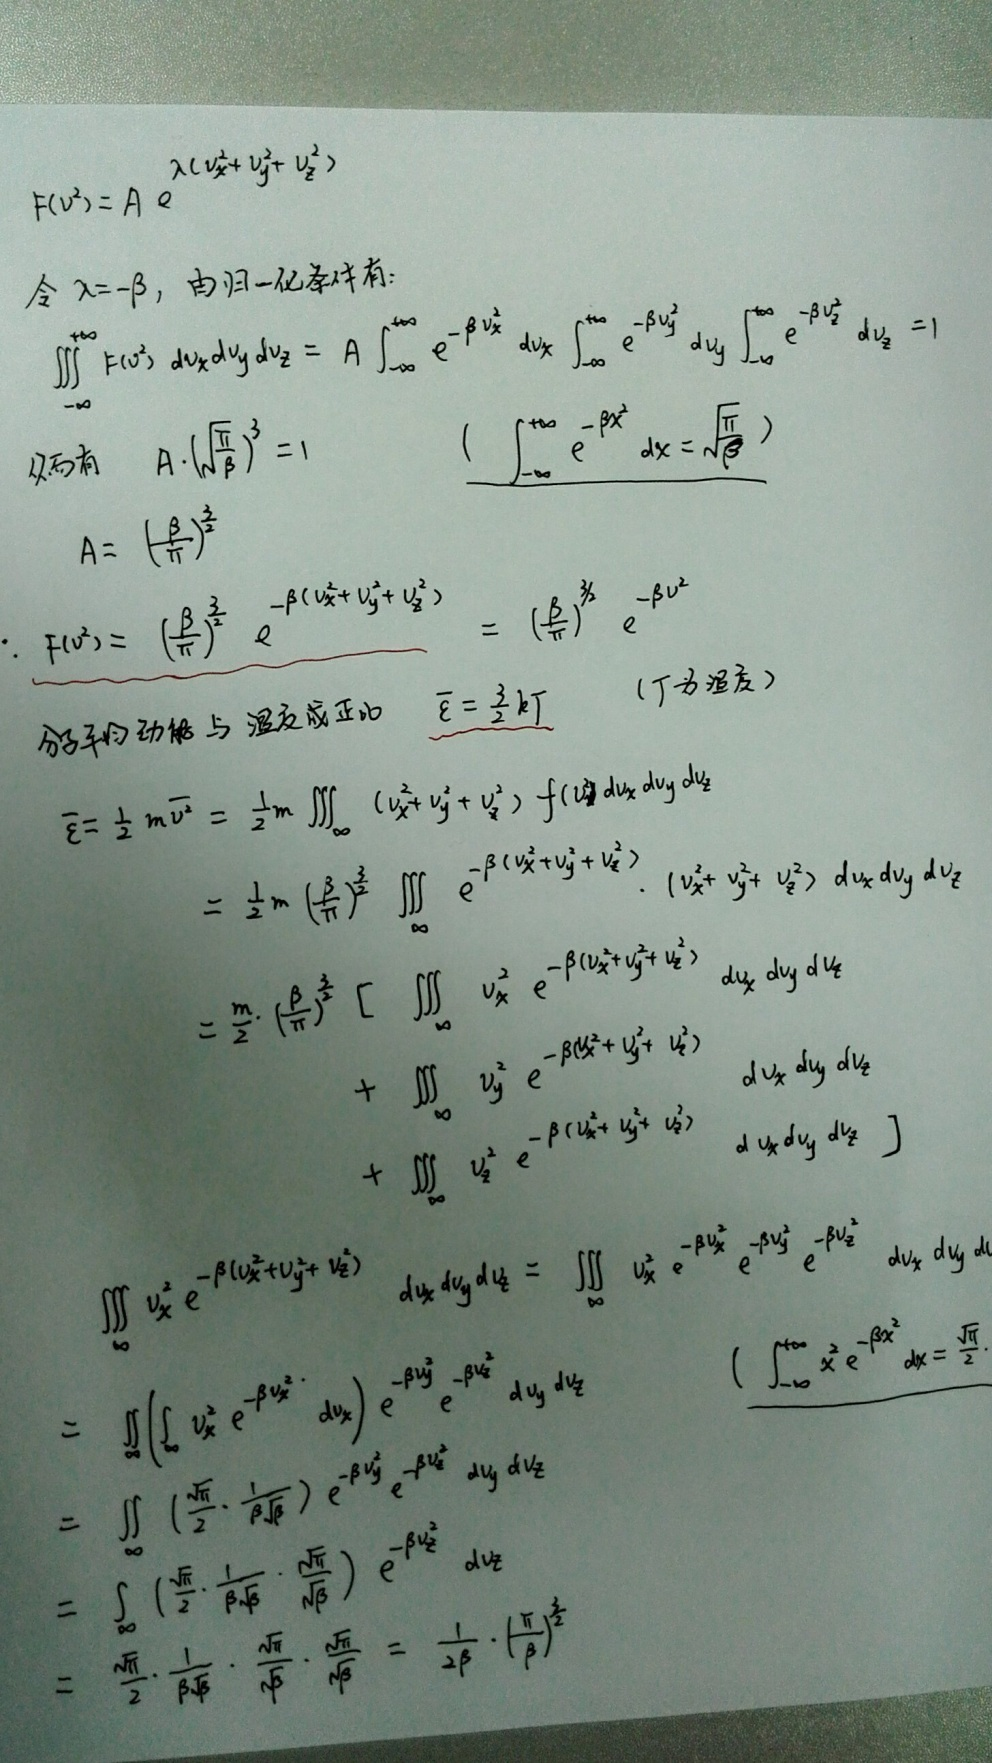 F(v²) = A e^{λ(v_x²+v_y²+v_z²)}
令 λ=-β, 由归一化条件有:
∭_{-∞}^{+∞} F(v²) dv_x dv_y dv_z = A ∫_{-∞}^{+∞} e^{-βv_x²} dv_x ∫_{-∞}^{+∞} e^{-βv_y²} dv_y ∫_{-∞}^{+∞} e^{-βv_z²} dv_z = 1
从而有 A·(√(π/β))³ = 1 ( ∫_{-∞}^{+∞} e^{-βx²} dx = √(π/β) )
A = (β/π)^{3/2}
F(v²) = (β/π)^{3/2} e^{-β(v_x²+v_y²+v_z²)} = (β/π)^{3/2} e^{-βv²}
分子平均动能与温度成正比 ε̄ = 3/2 kT (T为温度)
ε̄ = 1/2 m v̄² = 1/2 m ∭_∞ (v_x²+v_y²+v_z²) f(v²) dv_x dv_y dv_z
= 1/2 m (β/π)^{3/2} ∭_∞ e^{-β(v_x²+v_y²+v_z²)} · (v_x²+v_y²+v_z²) dv_x dv_y dv_z
= m/2 · (β/π)^{3/2} [ ∭_∞ v_x² e^{-β(v_x²+v_y²+v_z²)} dv_x dv_y dv_z
+ ∭_∞ v_y² e^{-β(v_x²+v_y²+v_z²)} dv_x dv_y dv_z
+ ∭_∞ v_z² e^{-β(v_x²+v_y²+v_z²)} dv_x dv_y dv_z ]
∭_∞ v_x² e^{-β(v_x²+v_y²+v_z²)} dv_x dv_y dv_z = ∭_∞ v_x² e^{-βv_x²} e^{-βv_y²} e^{-βv_z²} dv_x dv_y dv
= ∬_∞ (∫_∞ v_x² e^{-βv_x²} dv_x) e^{-βv_y²} e^{-βv_z²} dv_y dv_z ( ∫_{-∞}^{+∞} x² e^{-βx²} dx = √π/2 ·
= ∬_∞ (√π/2 · 1/(β√β)) e^{-βv_y²} e^{-βv_z²} dv_y dv_z
= ∫_∞ (√π/2 · 1/(β√β) · √π/√β) e^{-βv_z²} dv_z
= √π/2 · 1/(β√β) · √π/√β · √π/√β = 1/(2β) · (π/β)^{3/2}